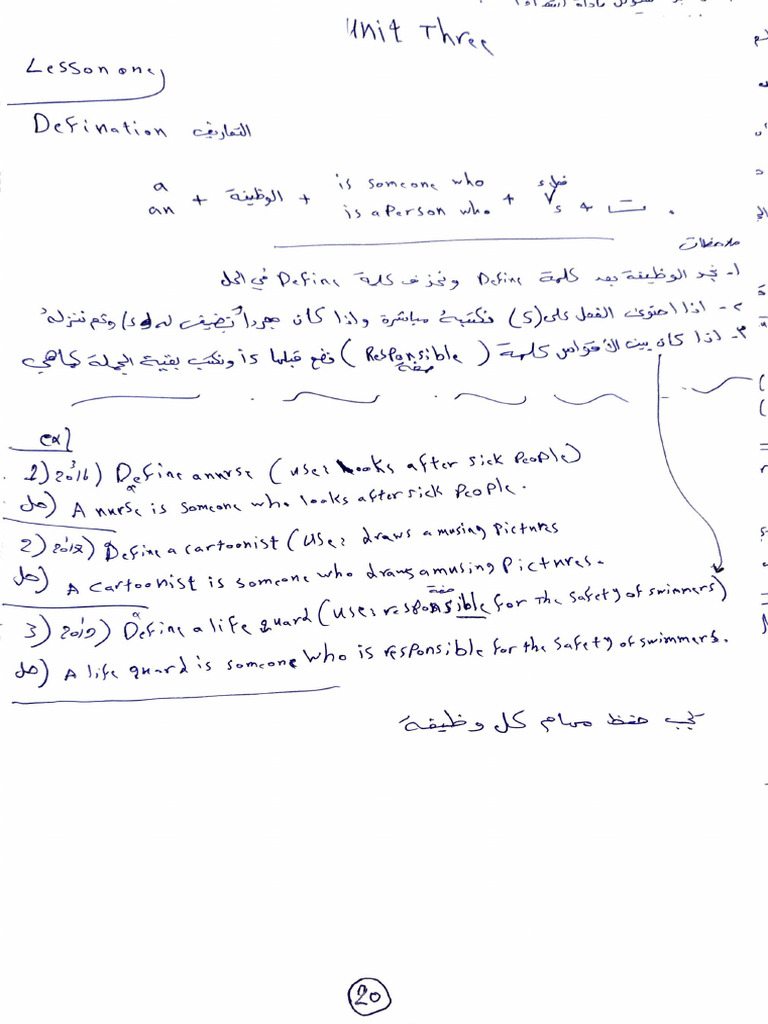 Unit Three
Lesson one
Defination التعاريف
a
an + الوظيفة + is someone who
is a Person who + فعل
Vs + ت .
ملاحظات
١- نجد الوظيفة بعد كلمة Define ونحذف كلمة Define في الحل
٢- اذا احتوى الفعل على (s) نكتبه مباشرة واذا كان مجرداً نضيف له (s) وثم ننزله
٣- اذا كان بين الأقواس كلمة (Responsible) نضع قبلها is ونكتب بقية الجملة كما هي
صفة
ex]
1) 2016/3) Define a nurse (use: looks after sick People)
حل) A nurse is someone who looks after sick People.
2) 2017) Define a cartoonist (use: draws amusing Pictures
حل) A cartoonist is someone who draws amusing Pictures.
صفة
3) 2019) Define a life guard (use: responsible for the safety of swimmers)
حل) A life guard is someone who is responsible for the safety of swimmers.
يجب حفظ مهام كل وظيفة
20